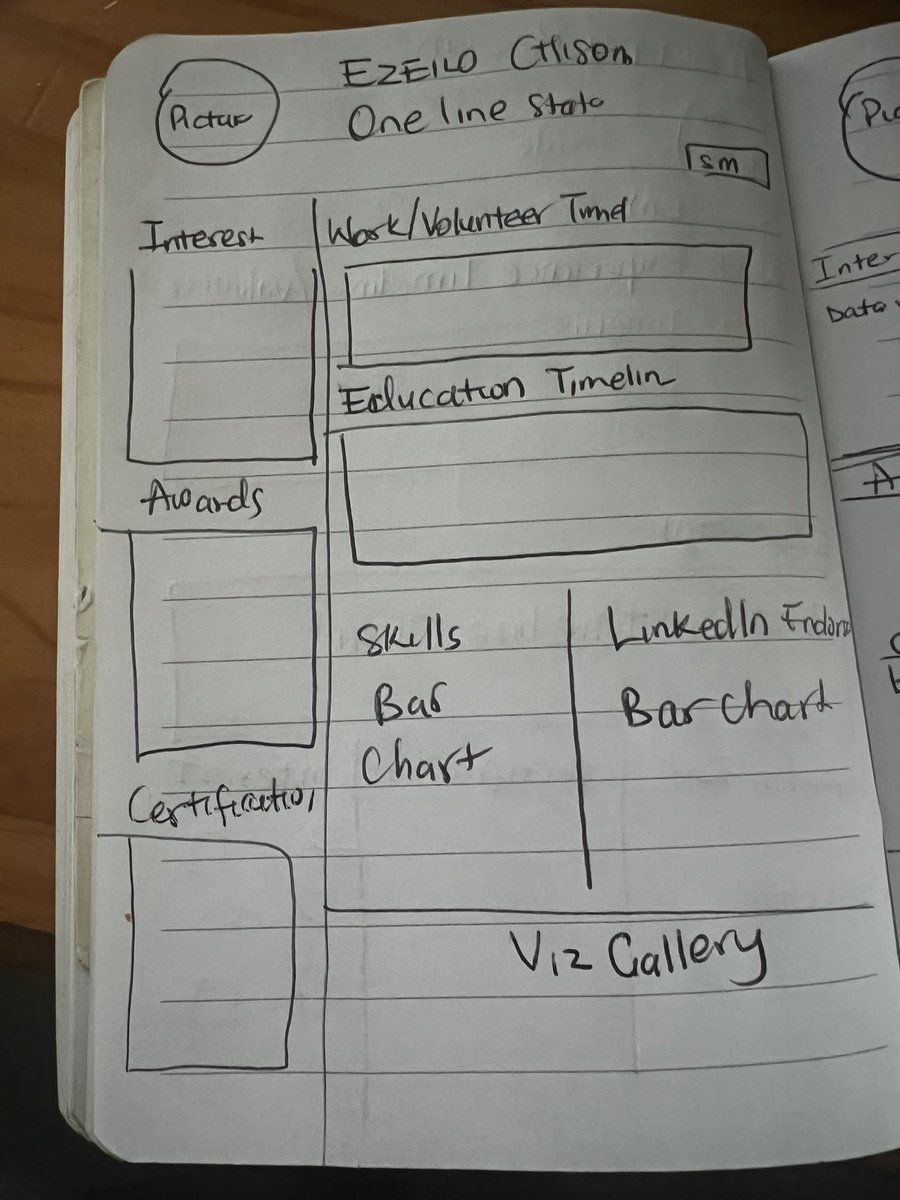 Pictur
EZEILO CHisom
One line State
sm
Interest
Work/Volunteer Timel
Education Timelin
Awards
Skills
Bar
Chart
LinkedIn Endors
Bar Chart
Certification
Viz Gallery
Inter
Data
A